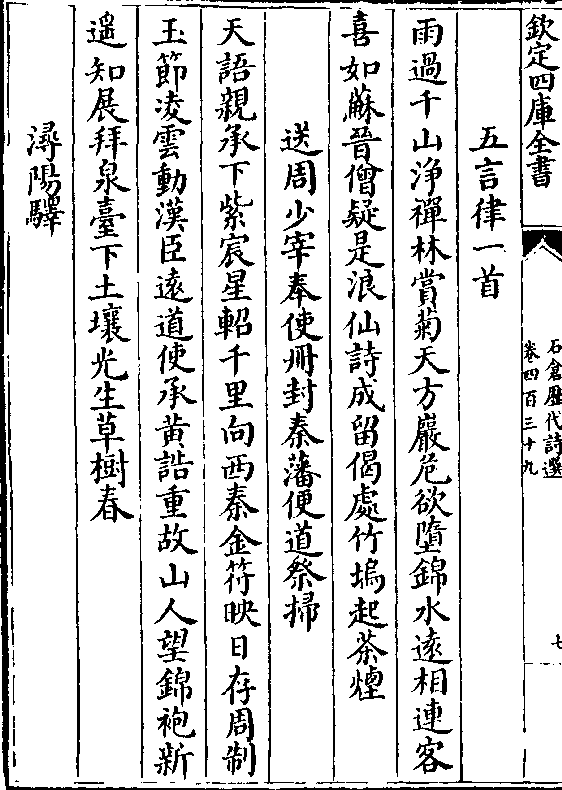 欽定四庫全書
石倉歴代詩選
卷四百三十九
七
五言律一首
雨過千山浄禪林賞菊天方巖危欲墮錦水遠相連客
喜如蘇晉僧疑是浪仙詩成留偈處竹塢起茶煙
送周少宰奉使冊封秦藩便道祭掃
天語親承下紫宸星軺千里向西秦金符映日存周制
玉節凌雲動漢臣遠道使承黄誥重故山人望錦袍新
遥知展拜泉臺下土壤光生草樹春
潯陽驛